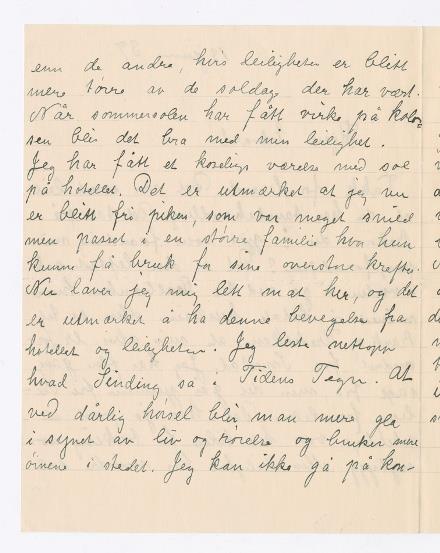 enn de andre, hvis leiligheter er blitt
mere tørre av de soldage der har vært.
Når sommersolen har fått virke på kolos-
sen blir det bra med min leilighet.
Jeg har fått et koselig værelse med sol
på hotellet. Det er utmærket at jeg nu
er blitt fri piken, som var meget snild
men passet i en større familie hvor hun
kunne få bruk for sine overstore kræfter.
Nu laver jeg mig lett mat her, og det
er utmærket å ha denne bevegelse fra
hotellet og leiligheten. Jeg leste nettopp
hvad Sinding sa i Tidens Tegn. At
ved dårlig hørsel blir man mere gla
i synet av liv og rørelse og bruker mere
øinene i stedet. Jeg kan ikke gå på kon-